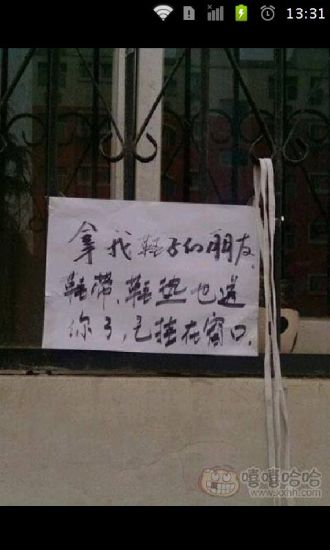 13:31
拿我鞋子的朋友,
鞋带、鞋垫也送
你了,已挂在窗口.
嘻嘻哈哈
www.xxhh.com